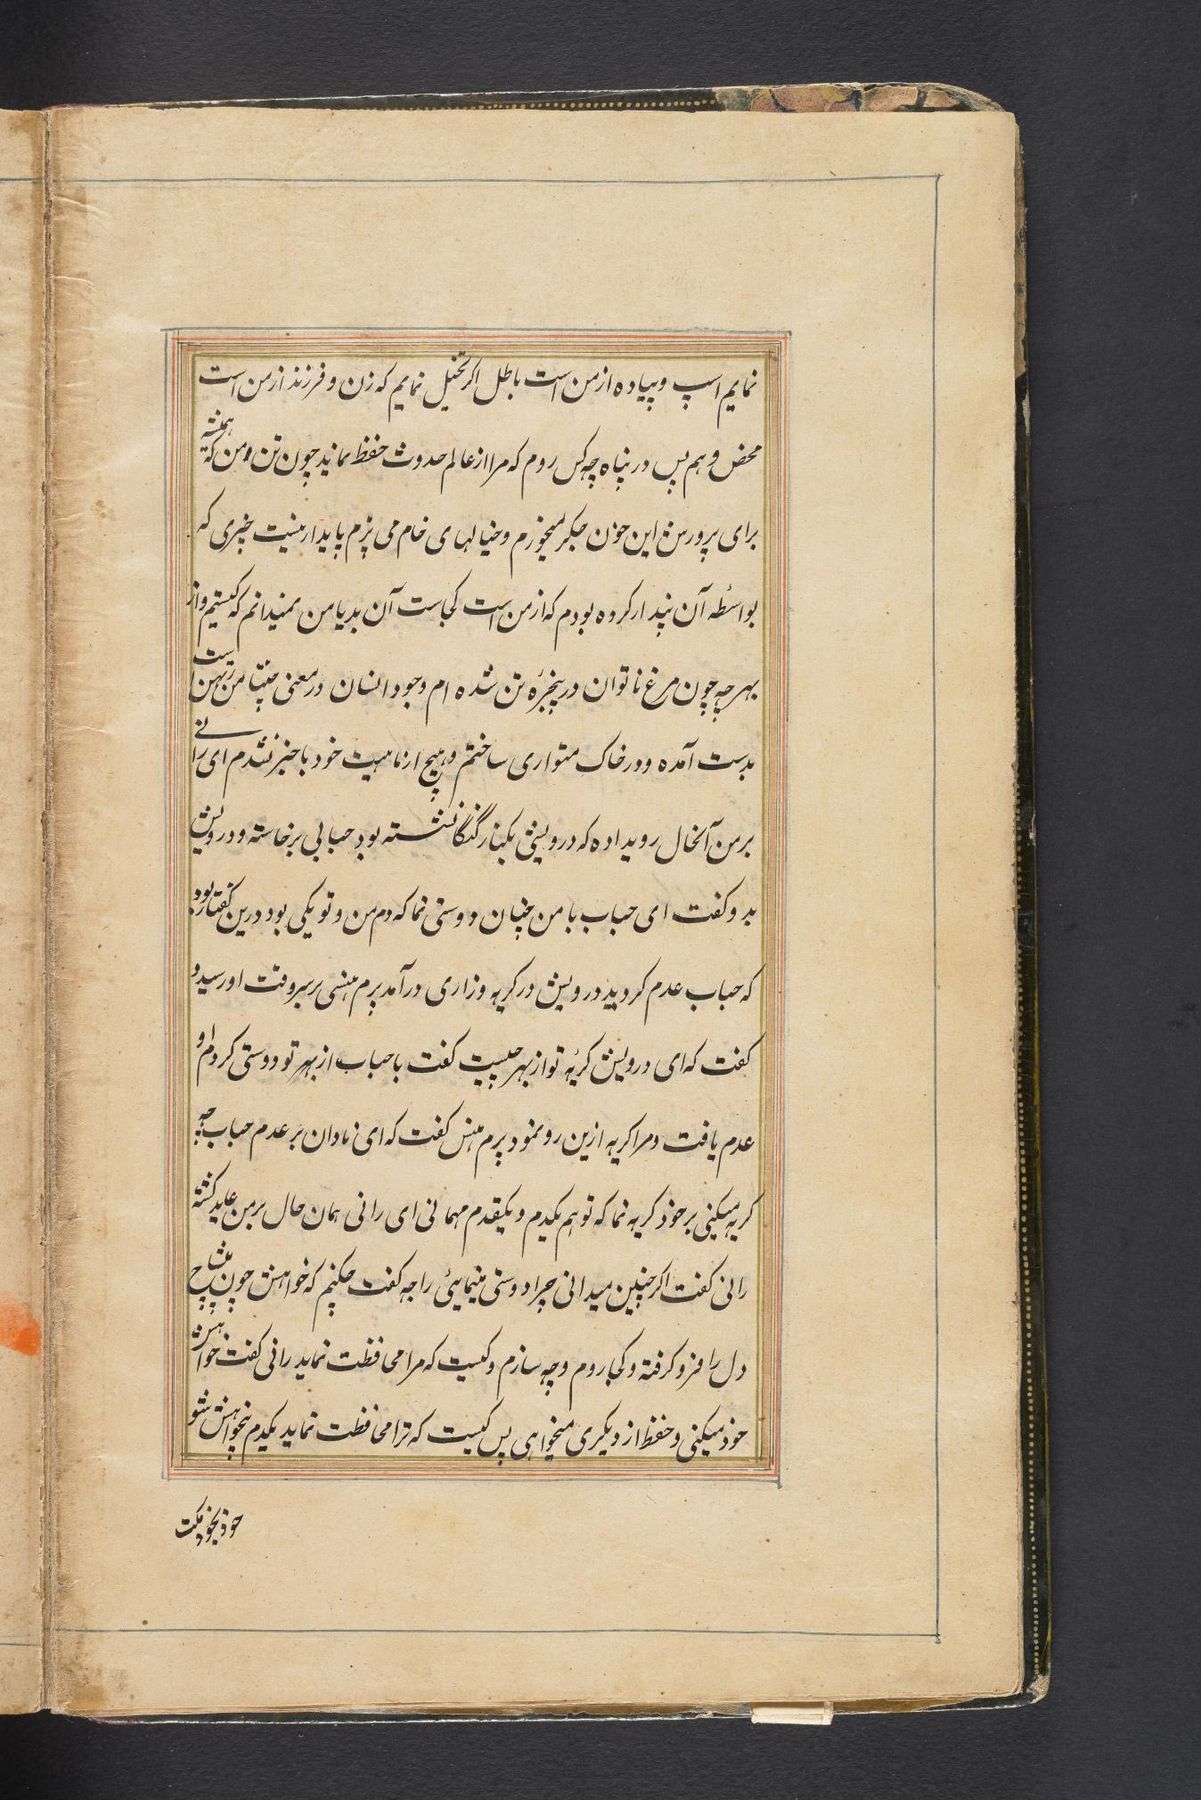 نمایم اسپ وپیاده ازمن است باطل اکر تخیل نمایم که زن و فرزند ازمن است
محض وهم پس در پناه چه کس روم که مرا از عالم حدوث حفظ نماید چون تن ومن که همیشه
برای پرورش این خون جکر میخورم وخیالهای خام می پزم پایدار نیست خبری که
بواسطه آن پندار کرده بودم که ازمن است کجاست آن بدیا من نمیدانم که کیستم واز
بهرچه چون مرغ ناتوان در پنجره تن شده ام وجود انسان در معنی
بدست آمده ودر خاک متواری ساختم وهیچ ازماهیت خود باخبر نشدم ای رانی
برمن آنحال رویداده که درویشی بکنار گنگا نشسته بود حبابی برخاسته ودرویش
بدو کفت ای حباب با من چنان دوستی نما که دم من وتو یکی بود درین کفتار بود
که حباب عدم کردید درویش در کریه وزاری درآمد پرم هنسی برسروقت اورسید و
کفت که ای درویش کریۀ تو از بهر چیست کفت با حباب از بهر تو دوستی کردم او
عدم یافت ومرا کریه ازین رو نمود پرم هنس کفت که ای نادان بر عدم حباب چه
کریه میکنی برخود کریه نما که توهم یکدم ویکقدم مهمانی ای رانی همان حال برمن عاید کشته
رانی کفت اکر چنین میدانی چرا دوستی مینمایئ راجه کفت چکنم که خواهش چون
دل را فرو کرفته وکجا روم وچه سازم وکیست که مرا محافظت نماید رانی کفت خواهش
خود میکنی وحفظ از دیکری میخواهی پس کیست که ترا محافظت نماید یکدم بیخواهش شو
خود بخود